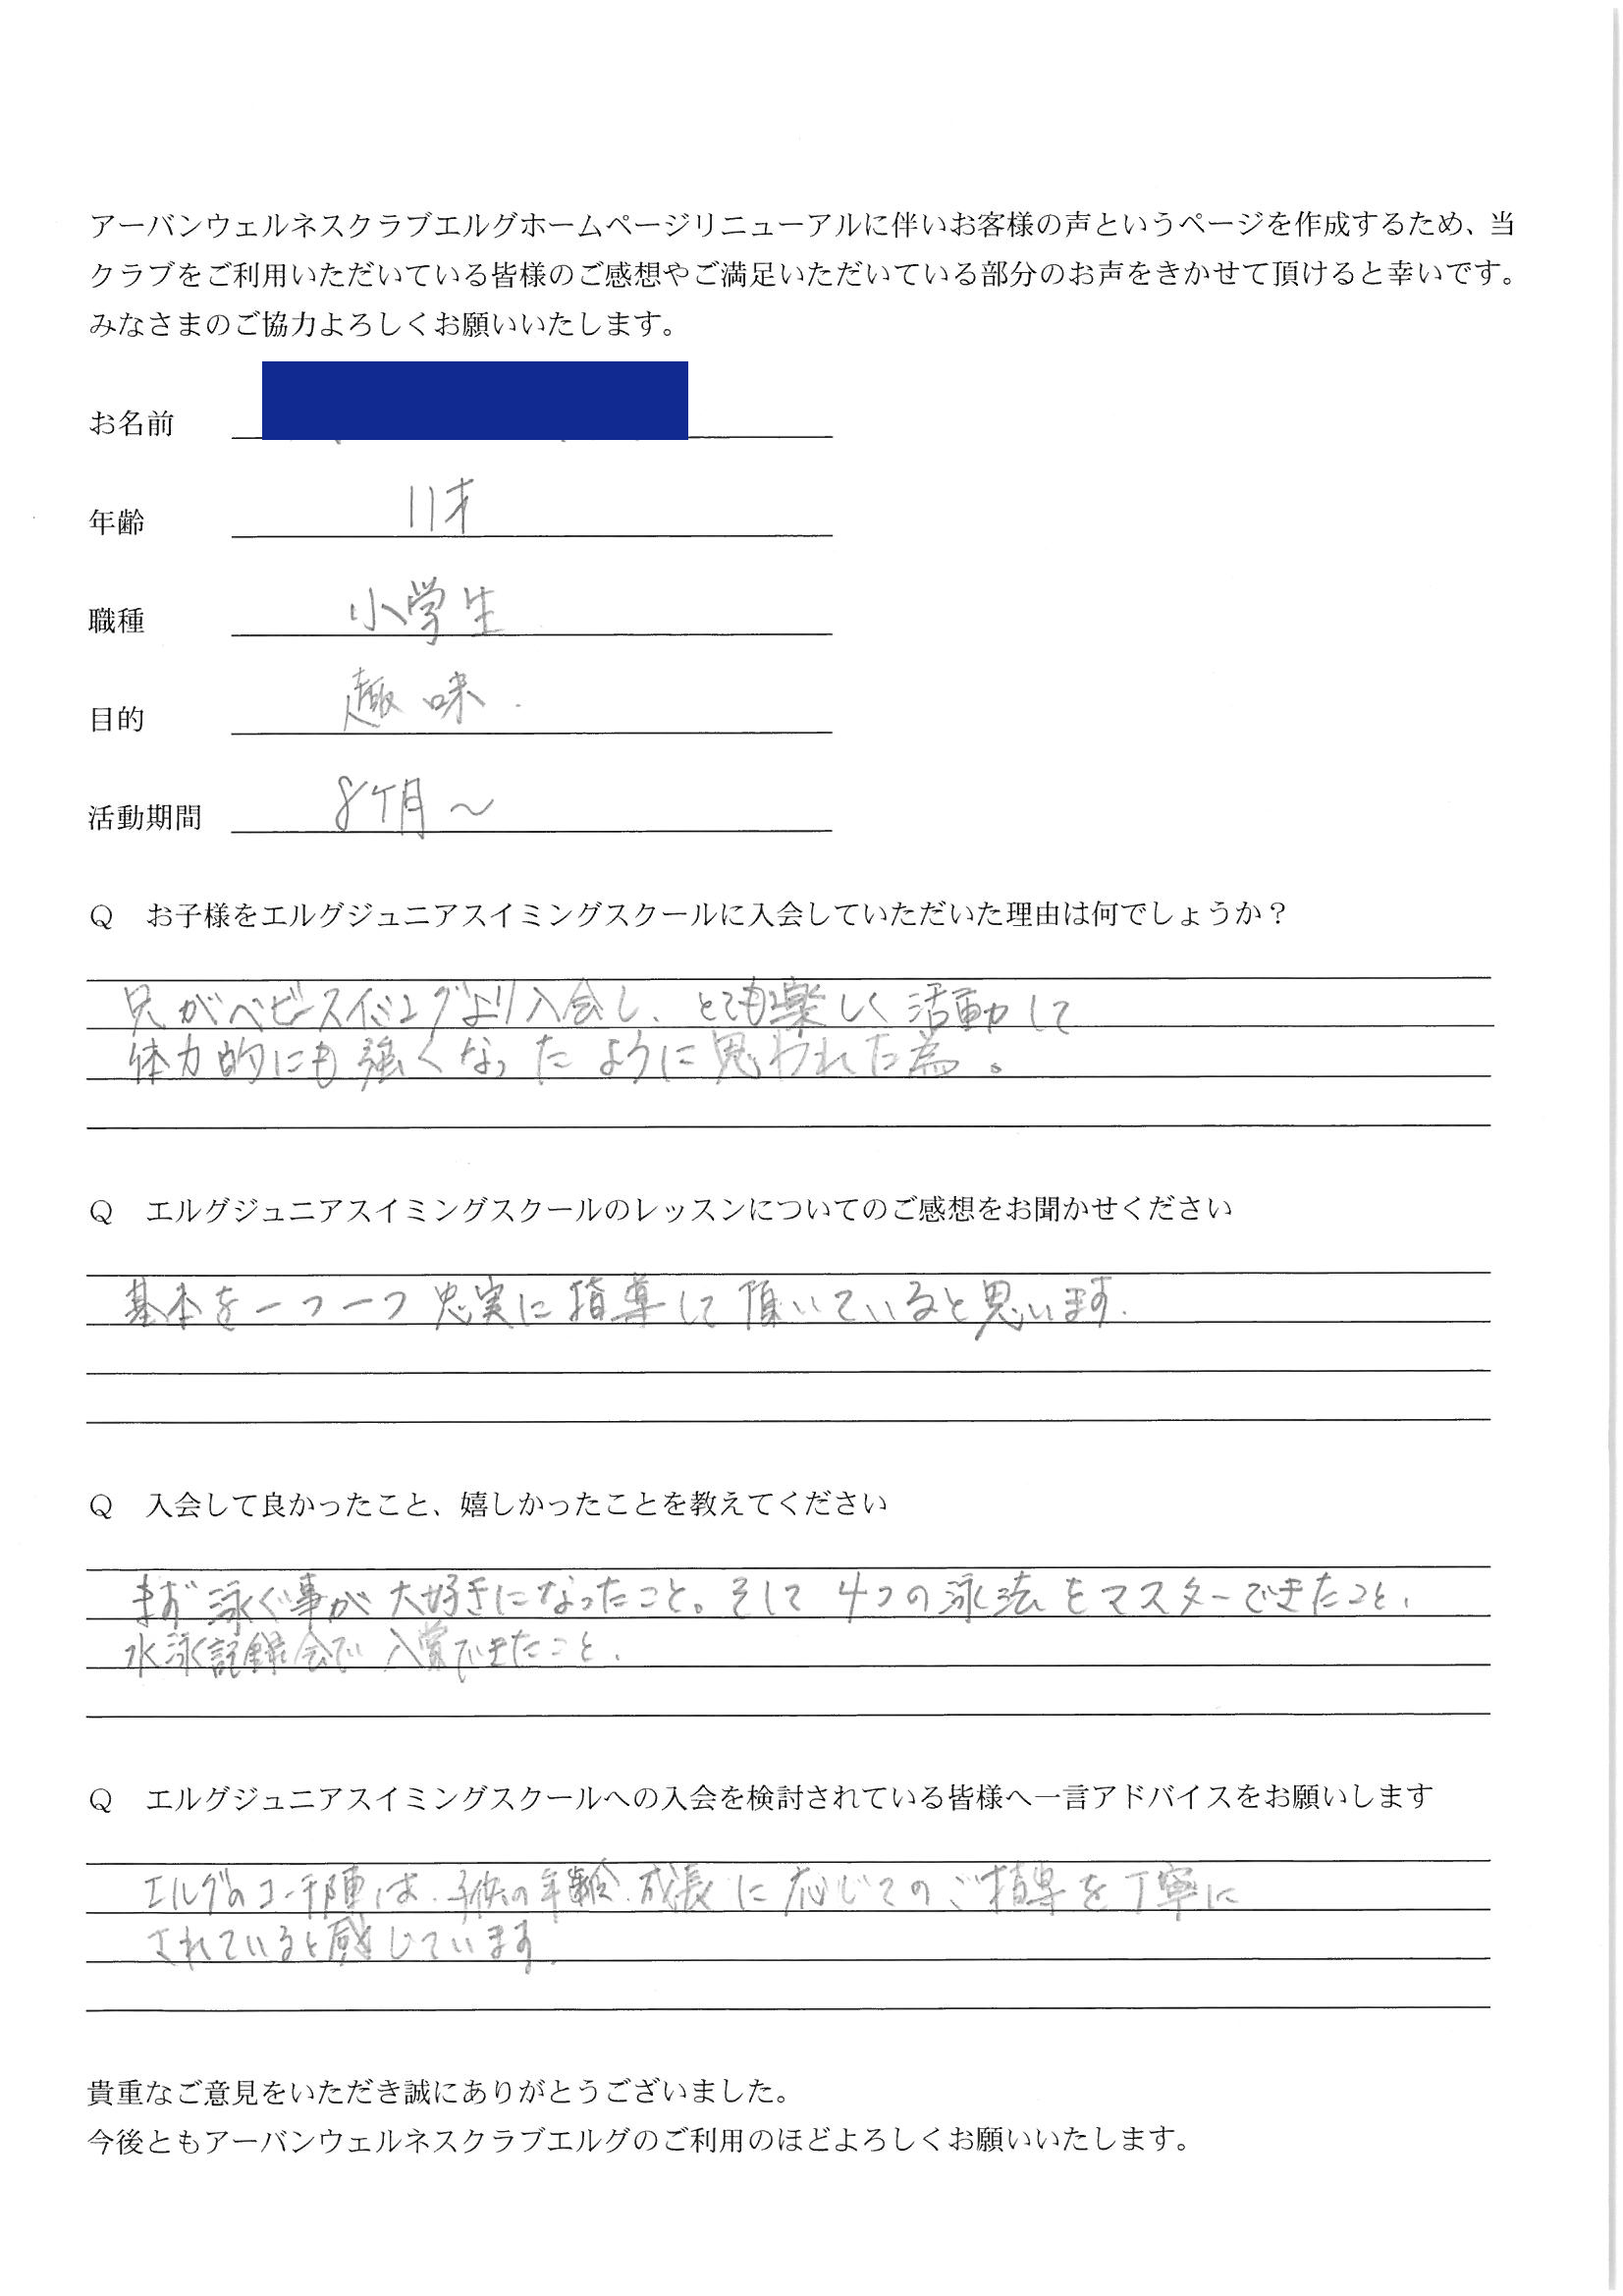 アーバンウェルネスクラブエルグホームページリニューアルに伴いお客様の声というページを作成するため、当
クラブをご利用いただいている皆様のご感想やご満足いただいている部分のお声をきかせて頂けると幸いです。
みなさまのご協力よろしくお願いいたします。
お名前
年齢 11才
職種 小学生
目的 趣味.
活動期間 8ヶ月～
Q お子様をエルグジュニアスイミングスクールに入会していただいた理由は何でしょうか？
兄がベビースイミングより入会し、とても楽しく活動して
体力的にも強くなったように思われた為。
Q エルグジュニアスイミングスクールのレッスンについてのご感想をお聞かせください
基本を一つ一つ忠実に指導して頂いていると思います.
Q 入会して良かったこと、嬉しかったことを教えてください
まず泳ぐ事が大好きになったこと。そして4つの泳法をマスターできたこと、
水泳記録会で入賞できたこと.
Q エルグジュニアスイミングスクールへの入会を検討されている皆様へ一言アドバイスをお願いします
エルグのコーチ陣は、子供の年齢、成長に応じてのご指導を丁寧に
されていると感じています.
貴重なご意見をいただき誠にありがとうございました。
今後ともアーバンウェルネスクラブエルグのご利用のほどよろしくお願いいたします。